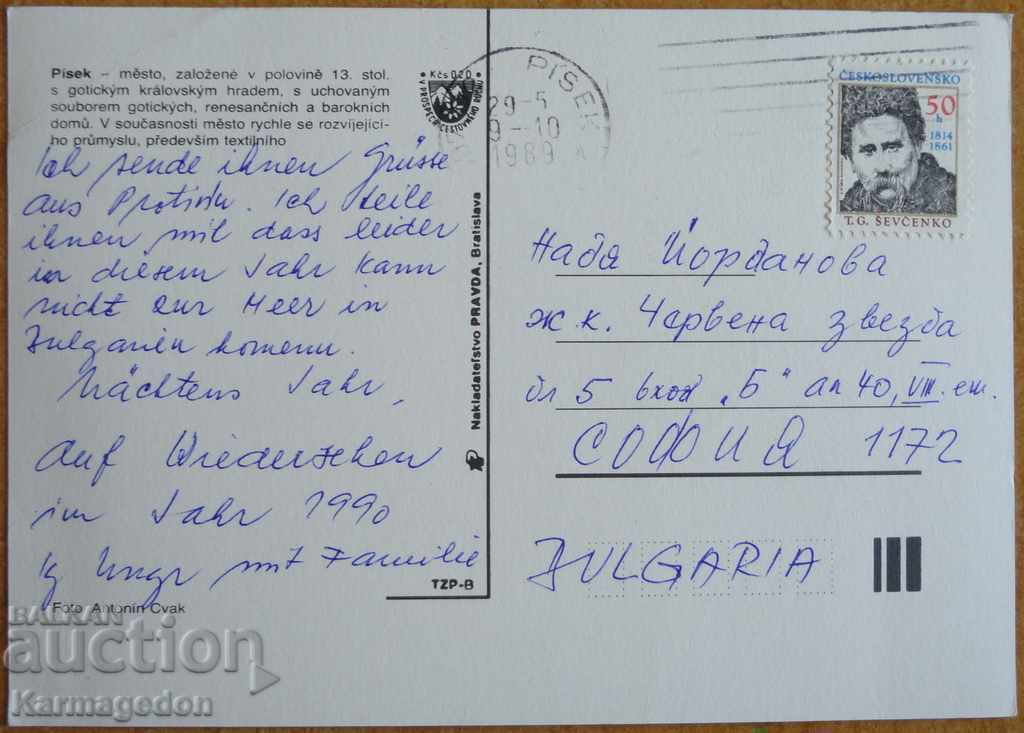 Písek – město, založené v polovině 13. stol.
s gotickým královským hradem, s uchovaným
souborem gotických, renesančních a barokních
domů. V současnosti město rychle se rozvíjející-
ho průmyslu, především textilního
Ich sende ihnen Grüsse
aus Protivin. Ich teile
ihnen mit dass leider
in diesem Jahr kann
nicht zur Meer in
Bulgarien komenn.
Nächtens Jahr,
Auf Wiedersehen
im Jahr 1990
mit Familie
Foto: Antonín Cvak
Kčs 0,20
V PROSPĚCH CESTOVNÉHO RUCHU
Nakladateľstvo PRAVDA, Bratislava
TZP-B
PÍSEK
29-5
9-10
1989
ČESKOSLOVENSKO
50
h
1814
1861
T. G. ŠEVČENKO
Надя Йорданова
ж.к. Червена звезда
бл 5 вход „Б" ап 40, VIII. ет.
СОФИЯ 1172
BULGARIA
BALKAN
auction
Karmagedon